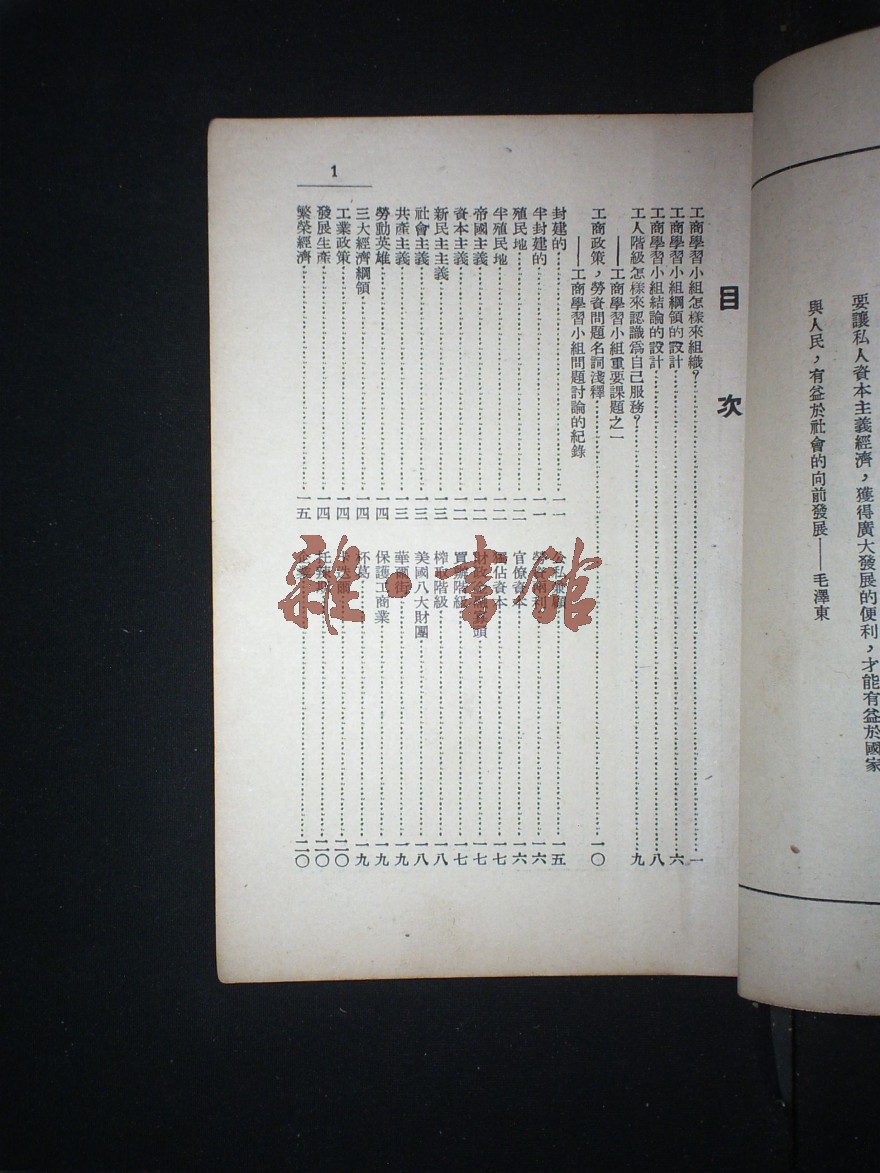 要讓私人資本主義經濟，獲得廣大發展的便利，才能有益於國家
與人民，有益於社會的向前發展——毛澤東
目次
工商學習小組怎樣來組織？……一
工商學習小組綱領的設計……六
工商學習小組結論的設計……八
工人階級怎樣來認識爲自己服務？……九
——工商學習小組重要課題之一
工商政策，勞資問題名詞淺釋……一〇
——工商學習小組問題討論的紀錄
封建的……一一
半封建的……一一
殖民地……一二
半殖民地……一二
帝國主義……一二
資本主義……一二
新民主主義……一三
社會主義……一三
共產主義……一三
勞動英雄……一四
三大經濟綱領……一四
工業政策……一四
發展生產……一四
繁榮經濟……一五
公私兼顧……一五
勞資兩利……一六
官僚資本……一六
獨佔資本……一七
財政金融寡頭……一七
買辦階級……一七
榨取階級……一八
美國八大財團……一八
華爾街……一九
保護工商業……一九
杯葛……一九
……二〇
托辣斯……二〇
……二〇
1
雜書館